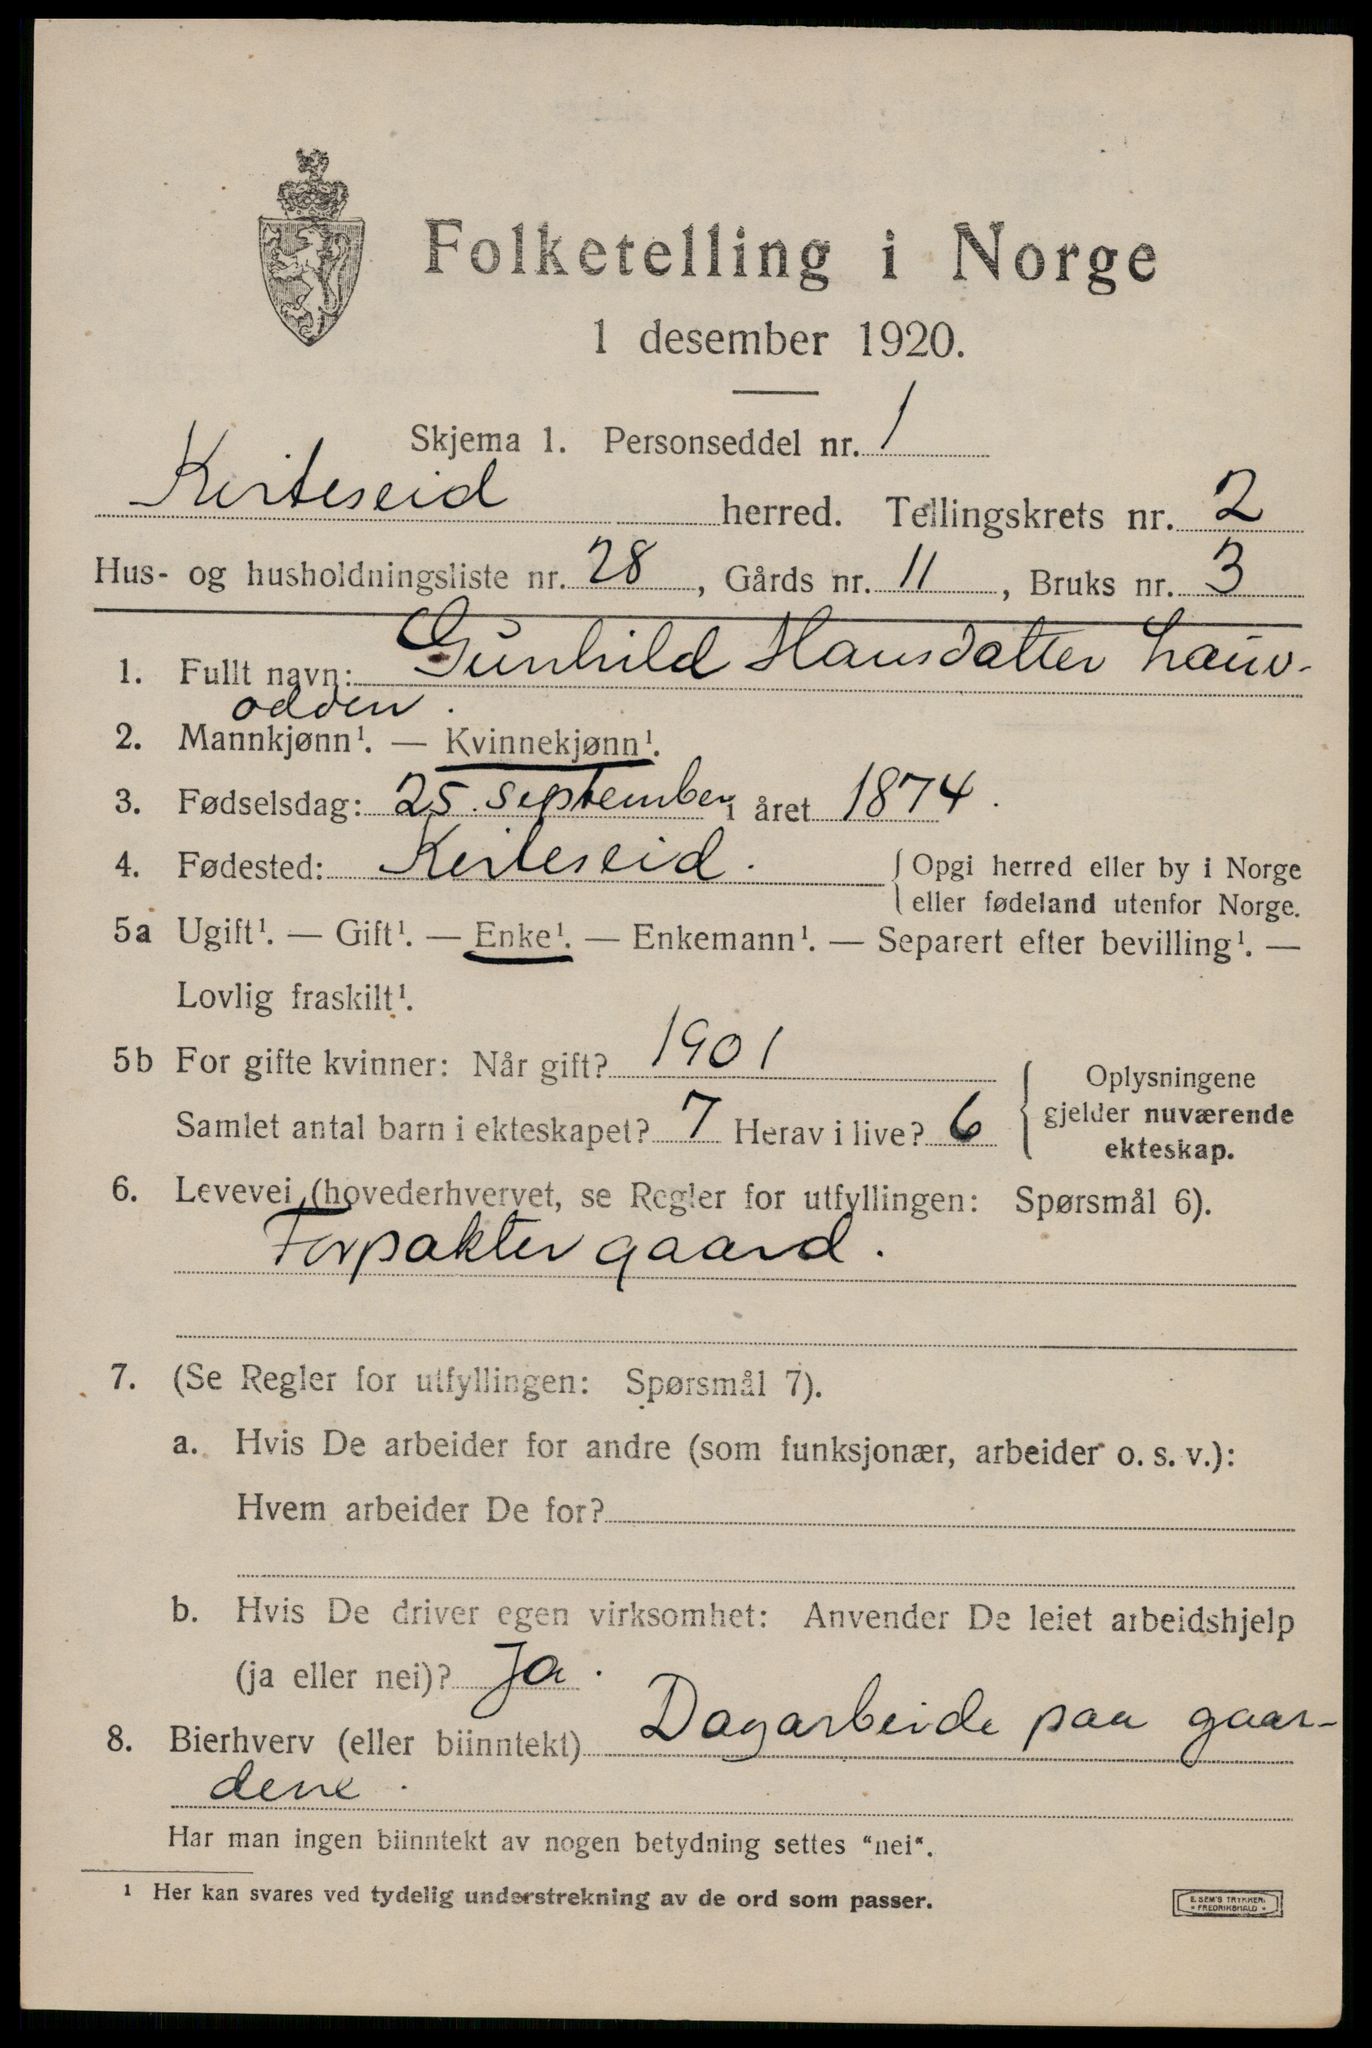 Folketelling i Norge
1 desember 1920.
Skjema 1. Personseddel nr. 1
Kviteseid herred. Tellingskrets nr. 2
Hus- og husholdningsliste nr. 28, Gårds nr. 11, Bruks nr. 3
1. Fullt navn: Gunhild Hansdatter Lauv-
odden.
2. Mannkjønn¹. — Kvinnekjønn¹.
3. Fødselsdag: 25. september i året 1874.
4. Fødested: Kviteseid. { Opgi herred eller by i Norge
eller fødeland utenfor Norge.
5a Ugift¹. — Gift¹. — Enke¹. — Enkemann¹. — Separert efter bevilling¹. —
Lovlig fraskilt¹.
5b For gifte kvinner: Når gift? 1901
Samlet antal barn i ekteskapet? 7 Herav i live? 6
{ Oplysningene
gjelder nuværende
ekteskap.
6. Levevei (hovederhvervet, se Regler for utfyllingen: Spørsmål 6).
Forpakter gaard.
7. (Se Regler for utfyllingen: Spørsmål 7).
a. Hvis De arbeider for andre (som funksjonær, arbeider o. s. v.):
Hvem arbeider De for?
b. Hvis De driver egen virksomhet: Anvender De leiet arbeidshjelp
(ja eller nei)? Ja.
8. Bierhverv (eller biinntekt) Dagarbeide paa gaar-
dene.
Har man ingen biinntekt av nogen betydning settes "nei".
¹ Her kan svares ved tydelig understrekning av de ord som passer.
E. SEM'S TRYKKERI
FREDRIKSHALD